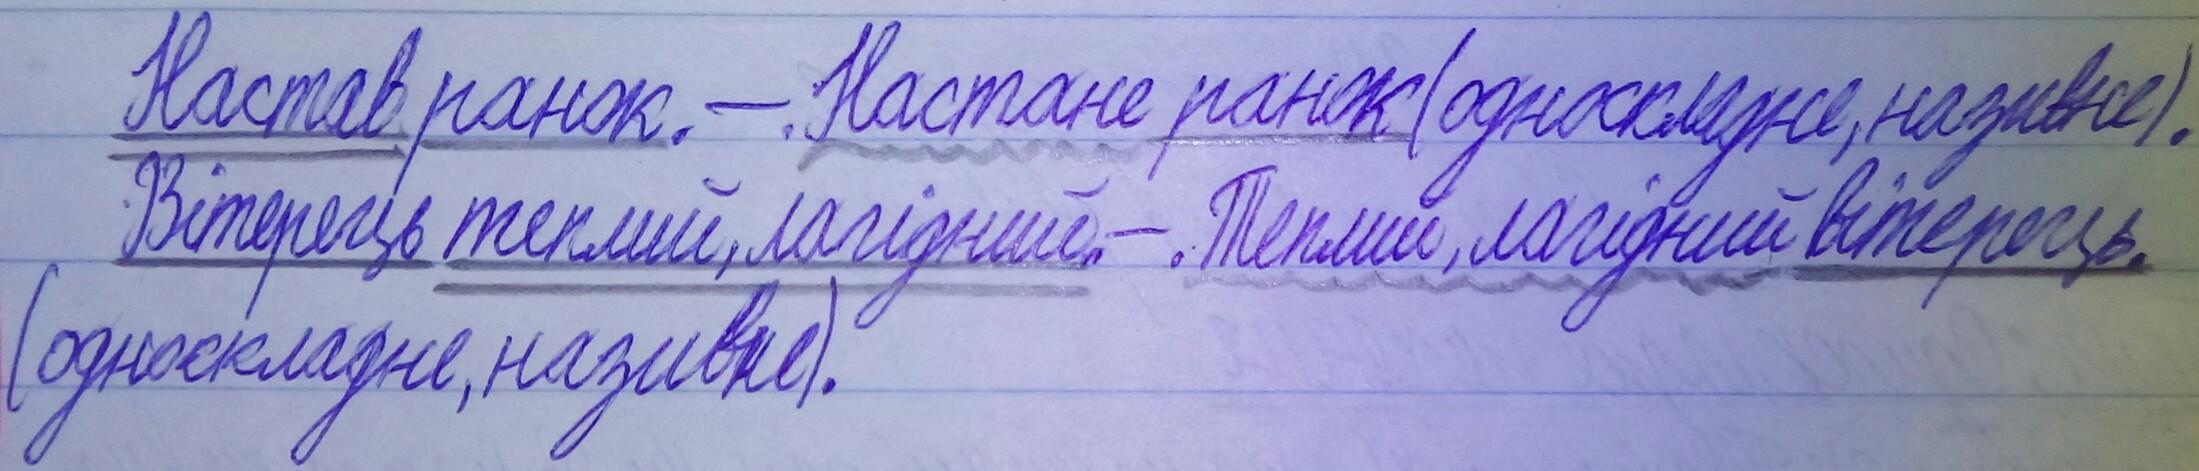 Настав ранок. — . Настане ранок (односкладне, називне).
Вітерець теплий, лагідний. — . Теплий, лагідний вітерець.
(односкладне, називне).